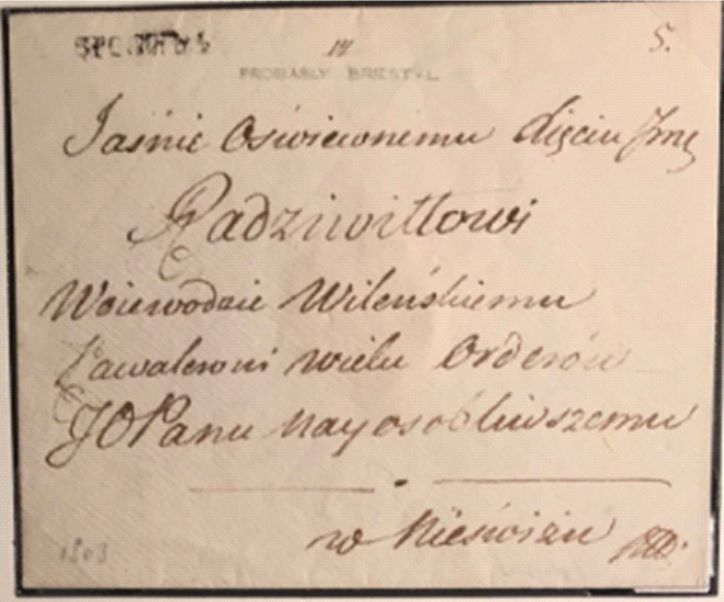 14
5.
PROBABLY
Jaśnie Oświeconemu Xięciu Jmę
Radziwiłłowi
Woiewodzie Wileńskiemu
Kawalerowi wielu Orderów
JOPanu Nayosobliwszemu
w Nieświżu
1803